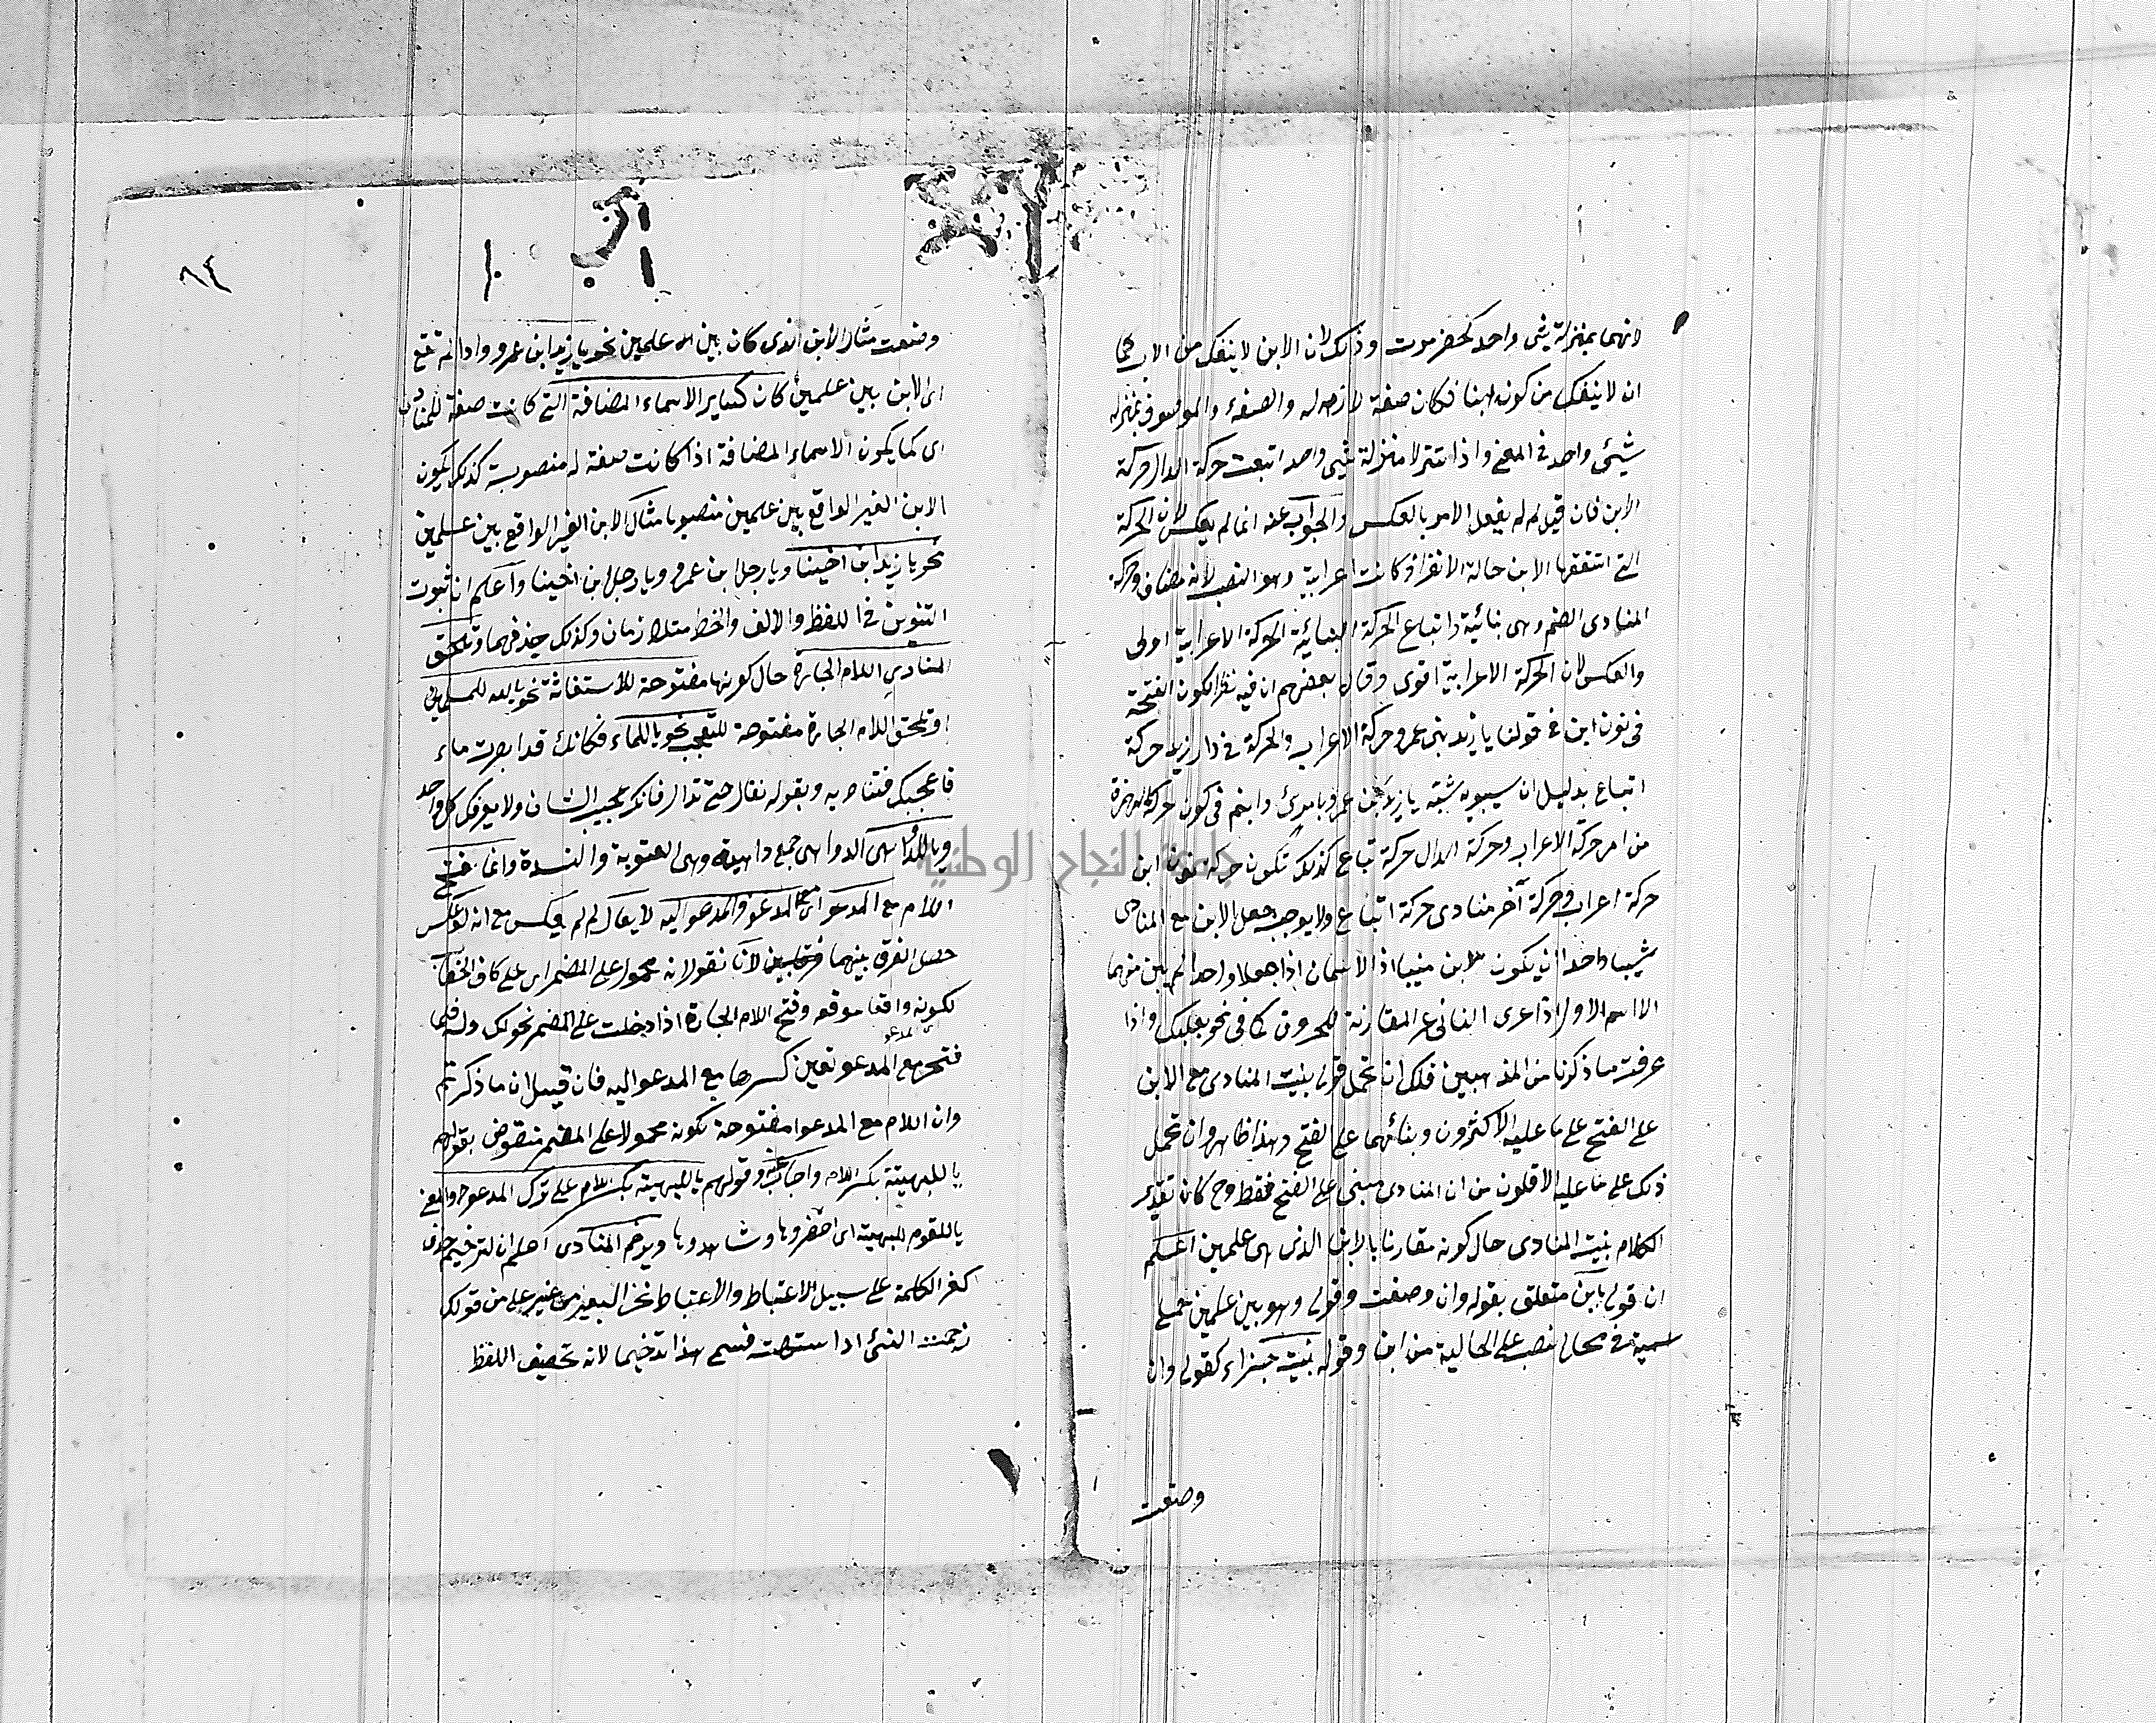 لانهما بمنزلة شئ واحد كحضرموت وذلك لان الابن لا ينفك من الاب كما
ان لا ينفك من كونه ابنا فكان صفة لازمه له والصفة والموصوف بمنزلة
شيئ واحد في المعنى واذا تنزلا منزلة شئ واحد اتبعت حركة الدال حركة
الابن فان قيل لم لم يفعل الامر بالعكس والجواب عنه انما لم يعكس لان الحركة
التي استحقها الابن حالة الانفراد كانت اعرابية وهو النصب لانه مضاف وحركة
المنادى الضم وهى بنائية واتباع الحركة البنائية الحركة الاعرابية اولى
والعكس لان الحركة الاعرابية اقوى وقال بعضهم ان فيه نظرا لكون الفتحة
فى نون ابن في قولنا يا زيد بن عمرو حركة الاعراب والحركة في دال زيد حركة
اتباع بدليل ان سيبويه شبه يا زيد بن عمرو بامرئ وابنم فى كون حركة
من امر حركة الاعراب وحركة الدال حركة اتباع كذلك تكون حركة نون ابن
حركة اعراب وحركة آخر منادى حركة اتباع ولا يوجب جعل الابن مع المنادى
شيئا واحدا ان يكون الابن مبنيا اذ الاسمان اذا جعلا واحدا لم يبن منهما
الا اسم الاول اذا عرى الثانى عن المقارنة للحروف كما فى نحو بعلبك واذا
عرفت ما ذكرنا من المذهبين فلك ان تحمل قوله بنيت المنادى مع الابن
على الفتح على ما عليه الاكثرون وبنائهما على الفتح وهذا ظاهر وان تحمل
ذلك على ما عليه الاقلون من ان المنادى مبنى على الفتح فقط وح كان تقدير
الكلام بنيت المنادى حال كونه مقارنا بالابن الذى بين علمين اعلم
ان قوله بابن متعلق بقوله وان وصفت وقوله وهو بين علمين جملة
سمية في محل النصب على الحالية من ابن وقوله بنيت جزاء كقوله وان
وصفت
٩٢
وصفت مثال الابن الذى كان بين العلمين نحو يا زيد ابن عمرو واذا لم تقع
اى الابن بين علمين كان كساير الاسماء المضافة التي كانت صفة للمنادى
اى كما يكون الاسماء المضافة اذا كانت صفة له منصوبة كذلك يكون
الابن الغير الواقع بين علمين منصوبا مثال الابن الغير الواقع بين علمين
نحو يا زيد ابن اخينا ويا رجل ابن عمرو ويا رجل ابن اخينا واعلم ان ثبوت
التنوين في اللفظ والالف والخط متلازمان وكذلك حذفهما وتلحق
المنادى اللام الجارة حال كونها مفتوحة للاستغاثة نحو يا لله للمسلمين
او تلحق اللام الجارة مفتوحة للتعجب نحو يا للماء فكانك قد ابصرت ماء
فاعجبك فتناديه وبقوله تعال حتى فانك عجيب الشان ولا يعرفك كل واحد
ويا للدواهى الدواهى جمع داهية وهى العقوبة والشدة وانما فتح
اللام مع المدعو اى المدعو والمدعو اليه لا يقال لم لم يعكس مع انه لو عكس
حصل الفرق بينهما لانا نقول انه محمول على المضمر اى على كاف الخطاب
لكونه واقعا موقعه وفتح اللام الجارة اذا دخلت على المضمر نحو لك وله فلما
المدعو
فتح مع المدعو تعين كسرها مع المدعو اليه فان قيل ان ما ذكرتم
وان اللام مع المدعو مفتوحة لكونه محمولا على المضمر منقوض بقولهم
يا للبهيتة بكسر اللام واجاب عنه وقولهم يا للبهيتة بكسر اللام على ترك المدعو والمعنى
يا للقوم للبهيتة اى احضروها وشاهدوها ويرخم المنادى اعلم ان الترخيم حذف
آخر الكلمة على سبيل الاعتباط والاعتباط نحر البعير من غير علة من قولك
رخمت الشئ اذا سهلته فسمى هذا ترخيما لانه تخفيف اللفظ
جامعة النجاح الوطنية